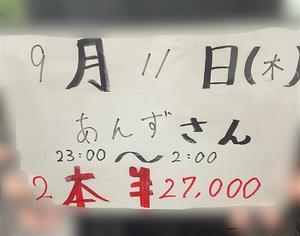 9月11日(木)
あんずさん
23:00〜2:00
2本 ¥27,000